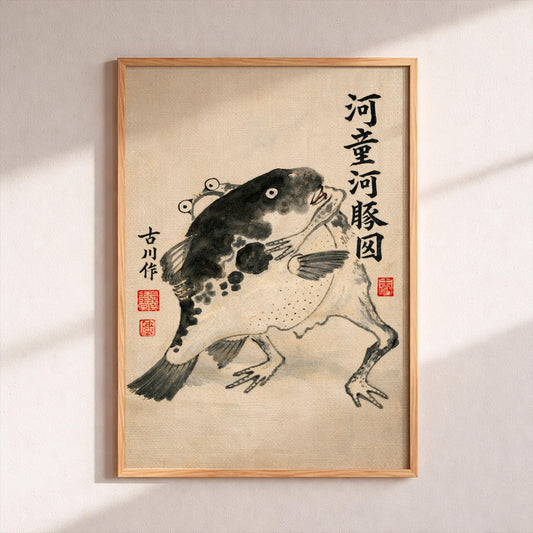 河童河豚図
古川作